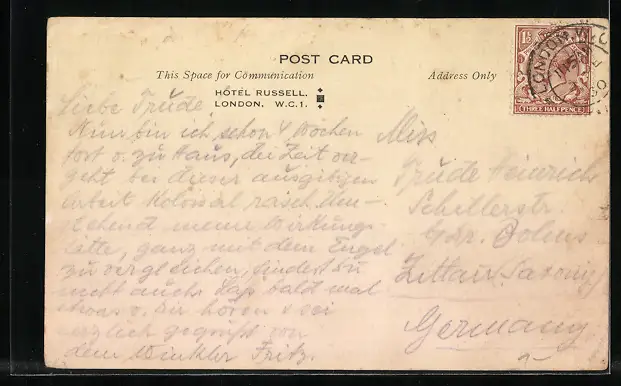 POST CARD
This Space for Communication
Address Only
HÔTEL RUSSELL.
LONDON. W.C.1.
Liebe Trude!
Nun bin ich schon 4 Wochen
fort v. zu Haus, die Zeit ver-
geht bei dieser ausgibigen
Arbeit Kolossal rasch. Um-
stehend meine Wirkungs-
ganz mit dem Engel
zu vergleichen, findest Du
nicht auch? Lass bald mal
etwas v. Dir hören u sei
herzlich gegrüßt von
dem Winkler Fritz.
Miss
Trude Heinrich
Schillerstr.
Zittau Saxony
Germany
LONDON. W.C.
1½ 1½
THREE HALFPENCE